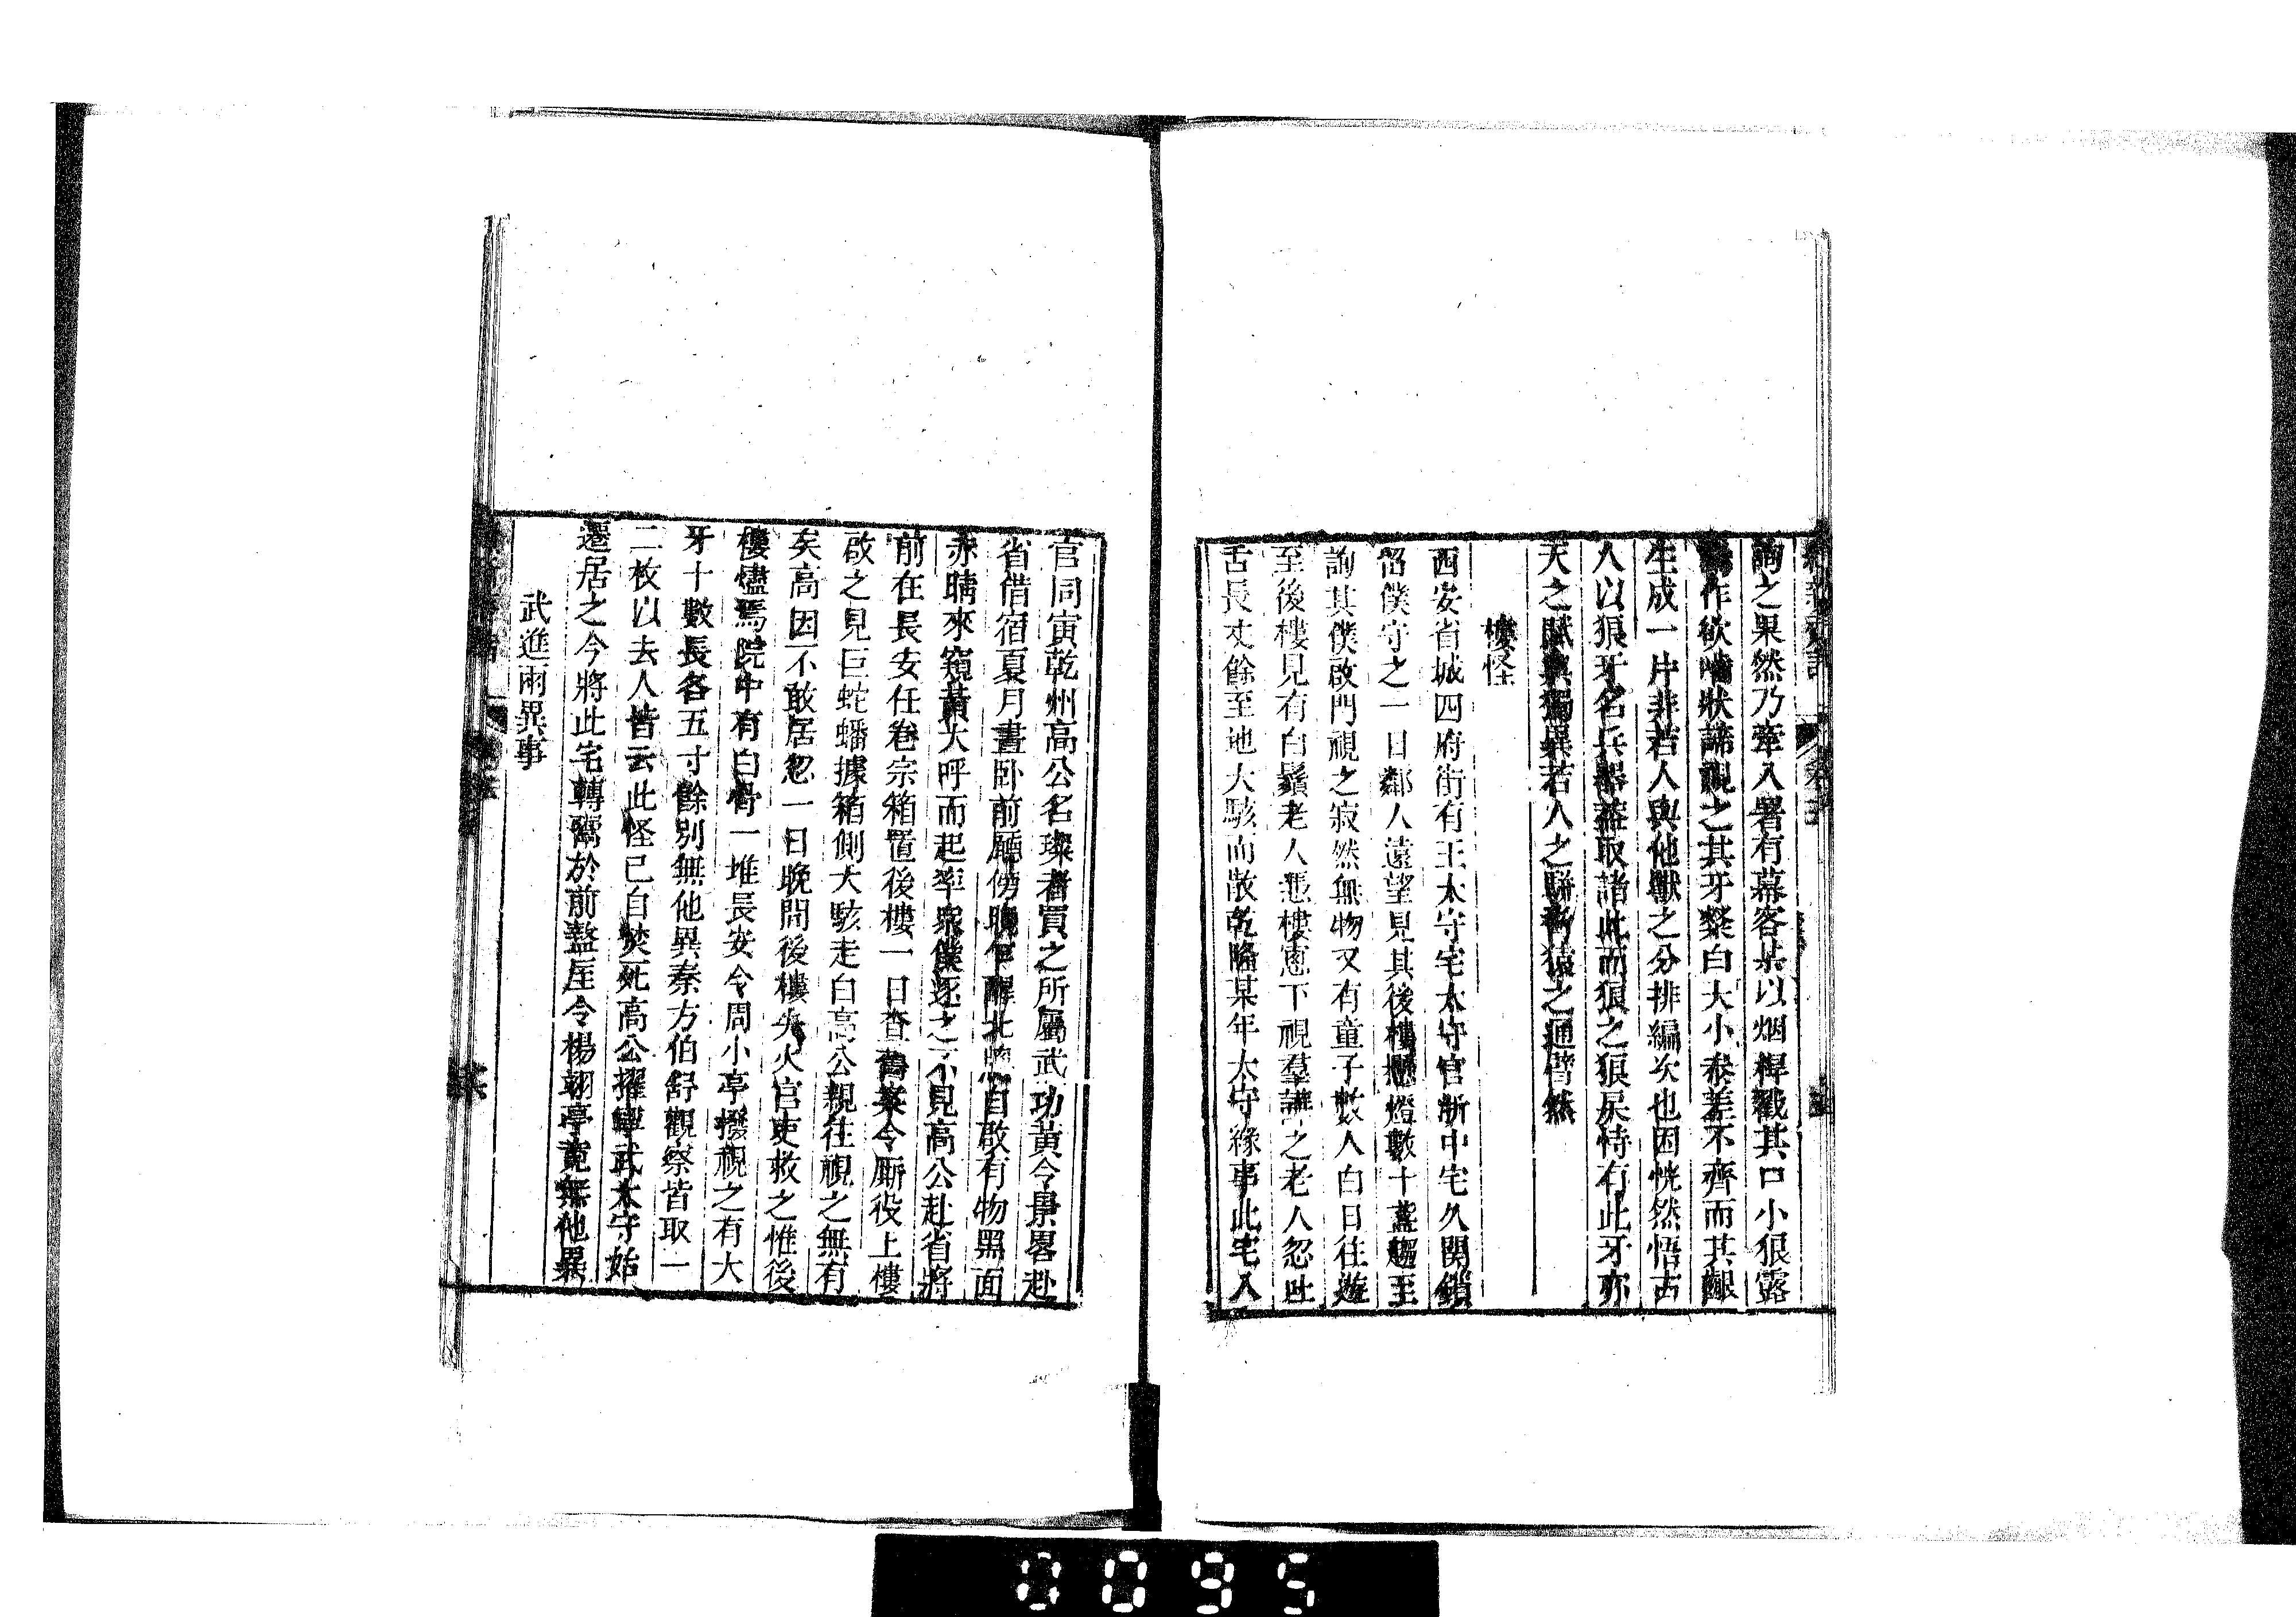 詢之果然乃牽入署有幕客某以烟桿戳其口小狠露
作欲嚙狀諦視之其牙粲白大小參差不齊而其齦
生成一片非若人與他獸之分排編次也因恍然悟古
人以狼牙名兵器葢取諸此而狠之狠戾恃有此牙亦
天之賦與獨異若人之駢脅猿之通臂然
樓怪
西安省城四府街有王太守宅太守官浙中宅久関鎖
留僕守之一日鄰人遠望見其後樓懸燈數十盞趨至
詢其僕啟門視之寂然無物又有童子數人白日往遊
至後樓見有白鬚老人憑樓窻下視羣譁之老人忽吐
舌長丈餘至地大駭而散乾隆某年太守緣事此宅入
官同寅乾州高公名璨者買之所屬武功黃令景畧赴
省借宿夏月晝卧前廳傍晚乍醒北窻自啟有物黑面
赤睛來窺黃大呼而起率衆僕逐之不見高公赴省將
前在長安任卷宗箱置後樓一日查舊案令厮役上樓
啟之見巨蛇蟠據箱側大駭走白高公親往視之無有
矣高因不敢居忽一日晚間後樓失火官吏救之惟後
樓燼焉院中有白骨一堆長安令周小亭撥視之有大
牙十數長各五寸餘別無他異秦方伯舒觀察皆取一
二枚以去人皆云此怪已自焚死高公擢鞏武太守始
遷居之今將此宅轉鬻於前盩厔令楊翊亭竟無他異
武進雨異事